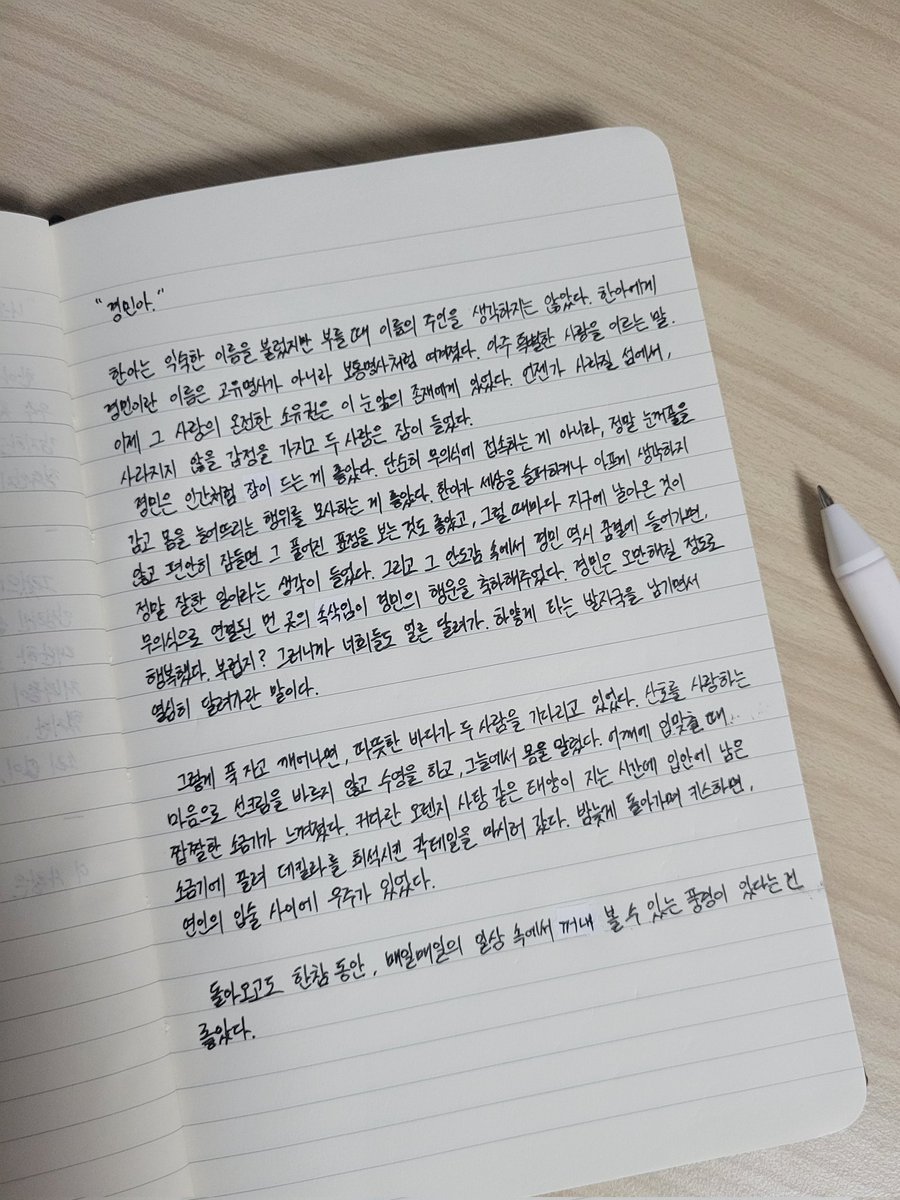 "경민아."
한아는 익숙한 이름을 불렀지만 부를 때 이름의 주인을 생각하지는 않았다. 한아에게
경민이란 이름은 고유명사가 아니라 보통명사처럼 여겨졌다. 아주 특별한 사랑을 이르는 말.
이제 그 사랑의 온전한 소유권은 이 눈앞의 존재에게 있었다. 언젠가 사라질 섬에서,
사라지지 않을 감정을 가지고 두 사람은 잠이 들었다.
경민은 인간처럼 잠이 드는 게 좋았다. 단순히 무의식에 접속하는 게 아니라, 정말 눈꺼풀을
감고 몸을 늘어뜨리는 행위를 모사하는 게 좋았다. 한아가 세상을 슬퍼하거나 아프게 생각하지
않고 편안히 잠들면 그 풀어진 표정을 보는 것도 좋았고, 그럴 때마다 지구에 날아온 것이
정말 잘한 일이라는 생각이 들었다. 그리고 그 안도감 속에서 경민 역시 꿈결에 들어가면,
무의식으로 연결된 먼 곳의 속삭임이 경민의 행운을 축하해주었다. 경민은 오만해질 정도로
행복했다. 부럽지? 그러니까 너희들도 얼른 달려가. 하얗게 타는 발자국을 남기면서
열심히 달려가란 말이다.
그렇게 푹 자고 깨어나면, 따뜻한 바다가 두 사람을 기다리고 있었다. 산호를 사랑하는
마음으로 선크림을 바르지 않고 수영을 하고, 그늘에서 몸을 말렸다. 어깨에 입맞출 때
짭짤한 소금기가 느껴졌다. 커다란 오렌지 사탕 같은 태양이 지는 시간에 입안에 남은
소금기에 끌려 데킬라를 희석시킨 칵테일을 마시러 갔다. 밤늦게 돌아가며 키스하면,
연인의 입술 사이에 우주가 있었다.
돌아오고도 한참 동안, 매일매일의 일상 속에서 꺼내 볼 수 있는 풍경이 있다는 건
좋았다.